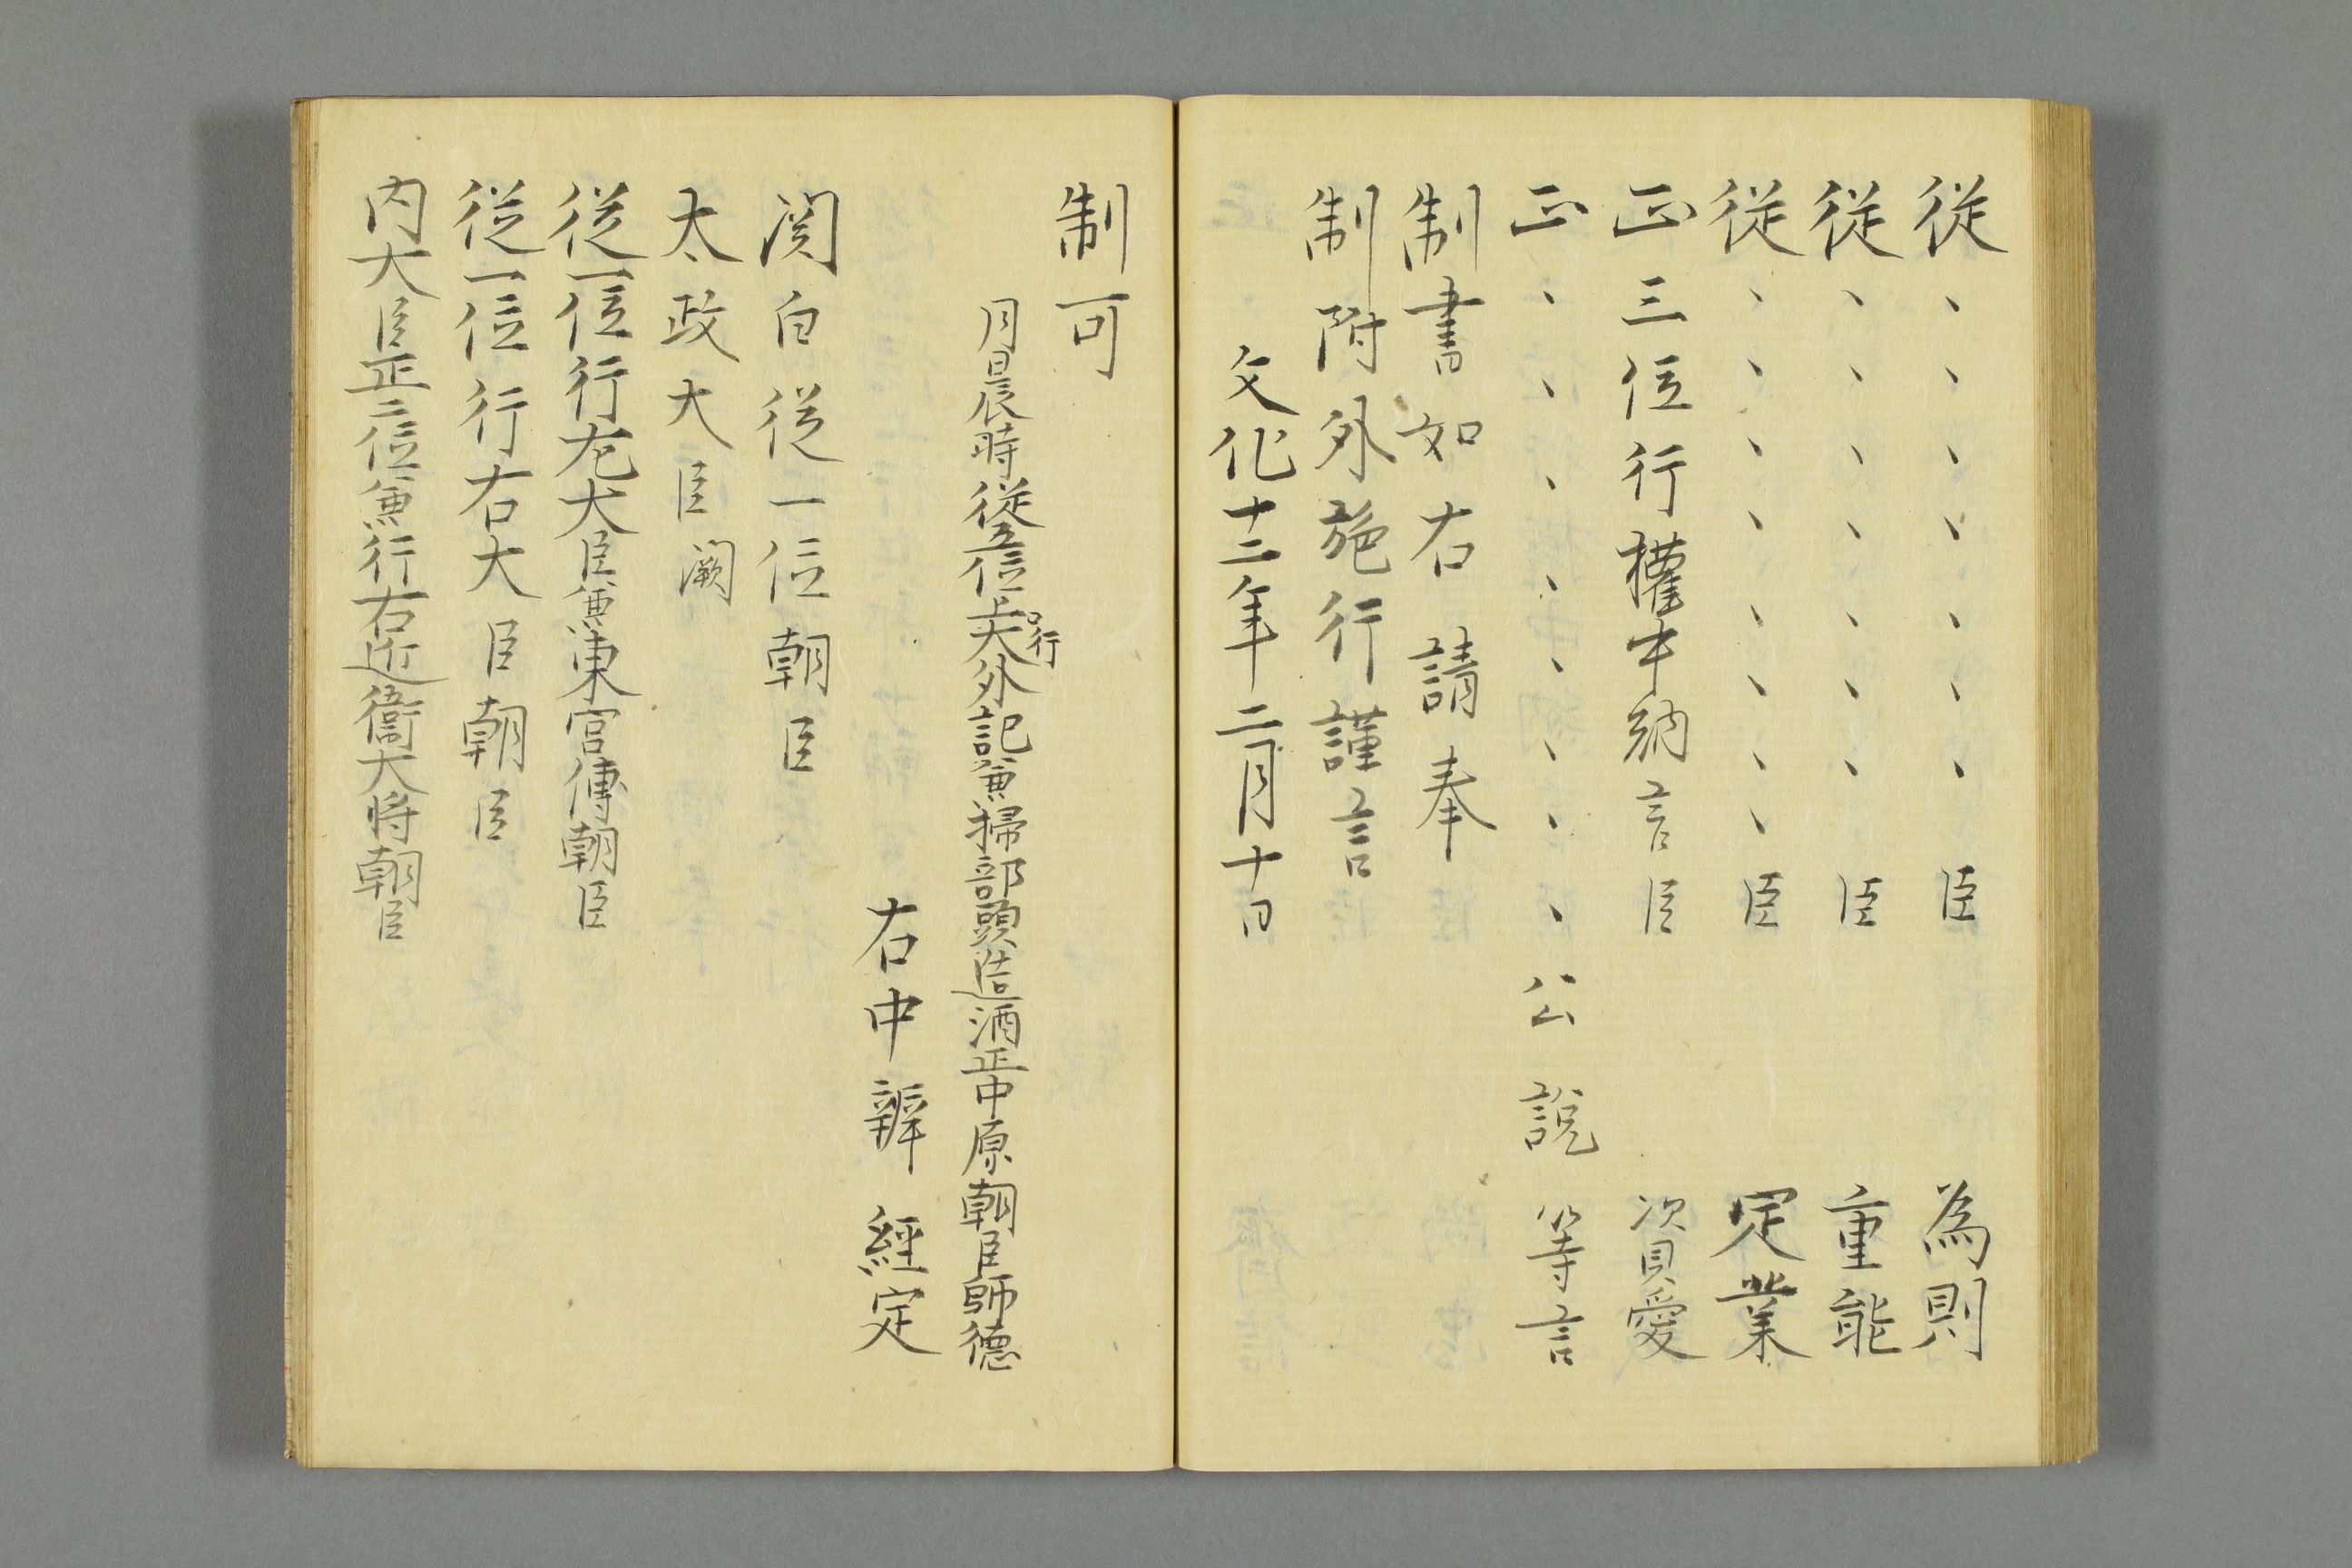 従、、、、、、臣　為則
従、、、、、、臣　重能
従、、、、、、、臣　定業
正三位行權中納言臣　資愛
正、、、、、、、、、公説　等言
制書如右請奉
制附外施行謹言
文化十二年二月十日
制可
月日辰時従五位上行大外記兼掃部頭造酒正中原朝臣師德
右中辨　經定
関白従一位朝臣
太政大臣闕
従一位行左大臣兼東宮傅朝臣
従一位行右大臣朝臣
内大臣正二位兼行右近衛大将朝臣